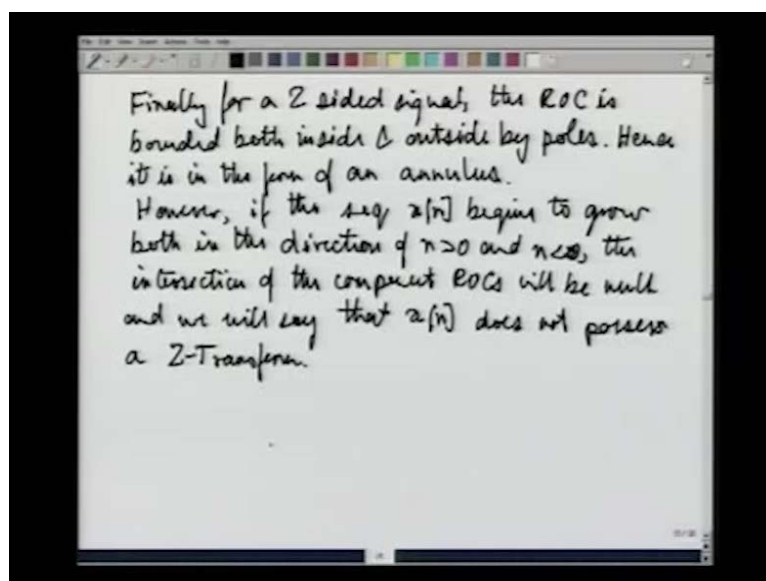 Finally for a 2 sided signal, the ROC is
bounded both inside & outside by poles. Hence
it is in the form of an annulus.
However, if the seq x[n] begins to grow
both in the direction of n>0 and n<0, the
intersection of the component ROCs will be null
and we will say that x[n] does not possess
a Z-Transform.